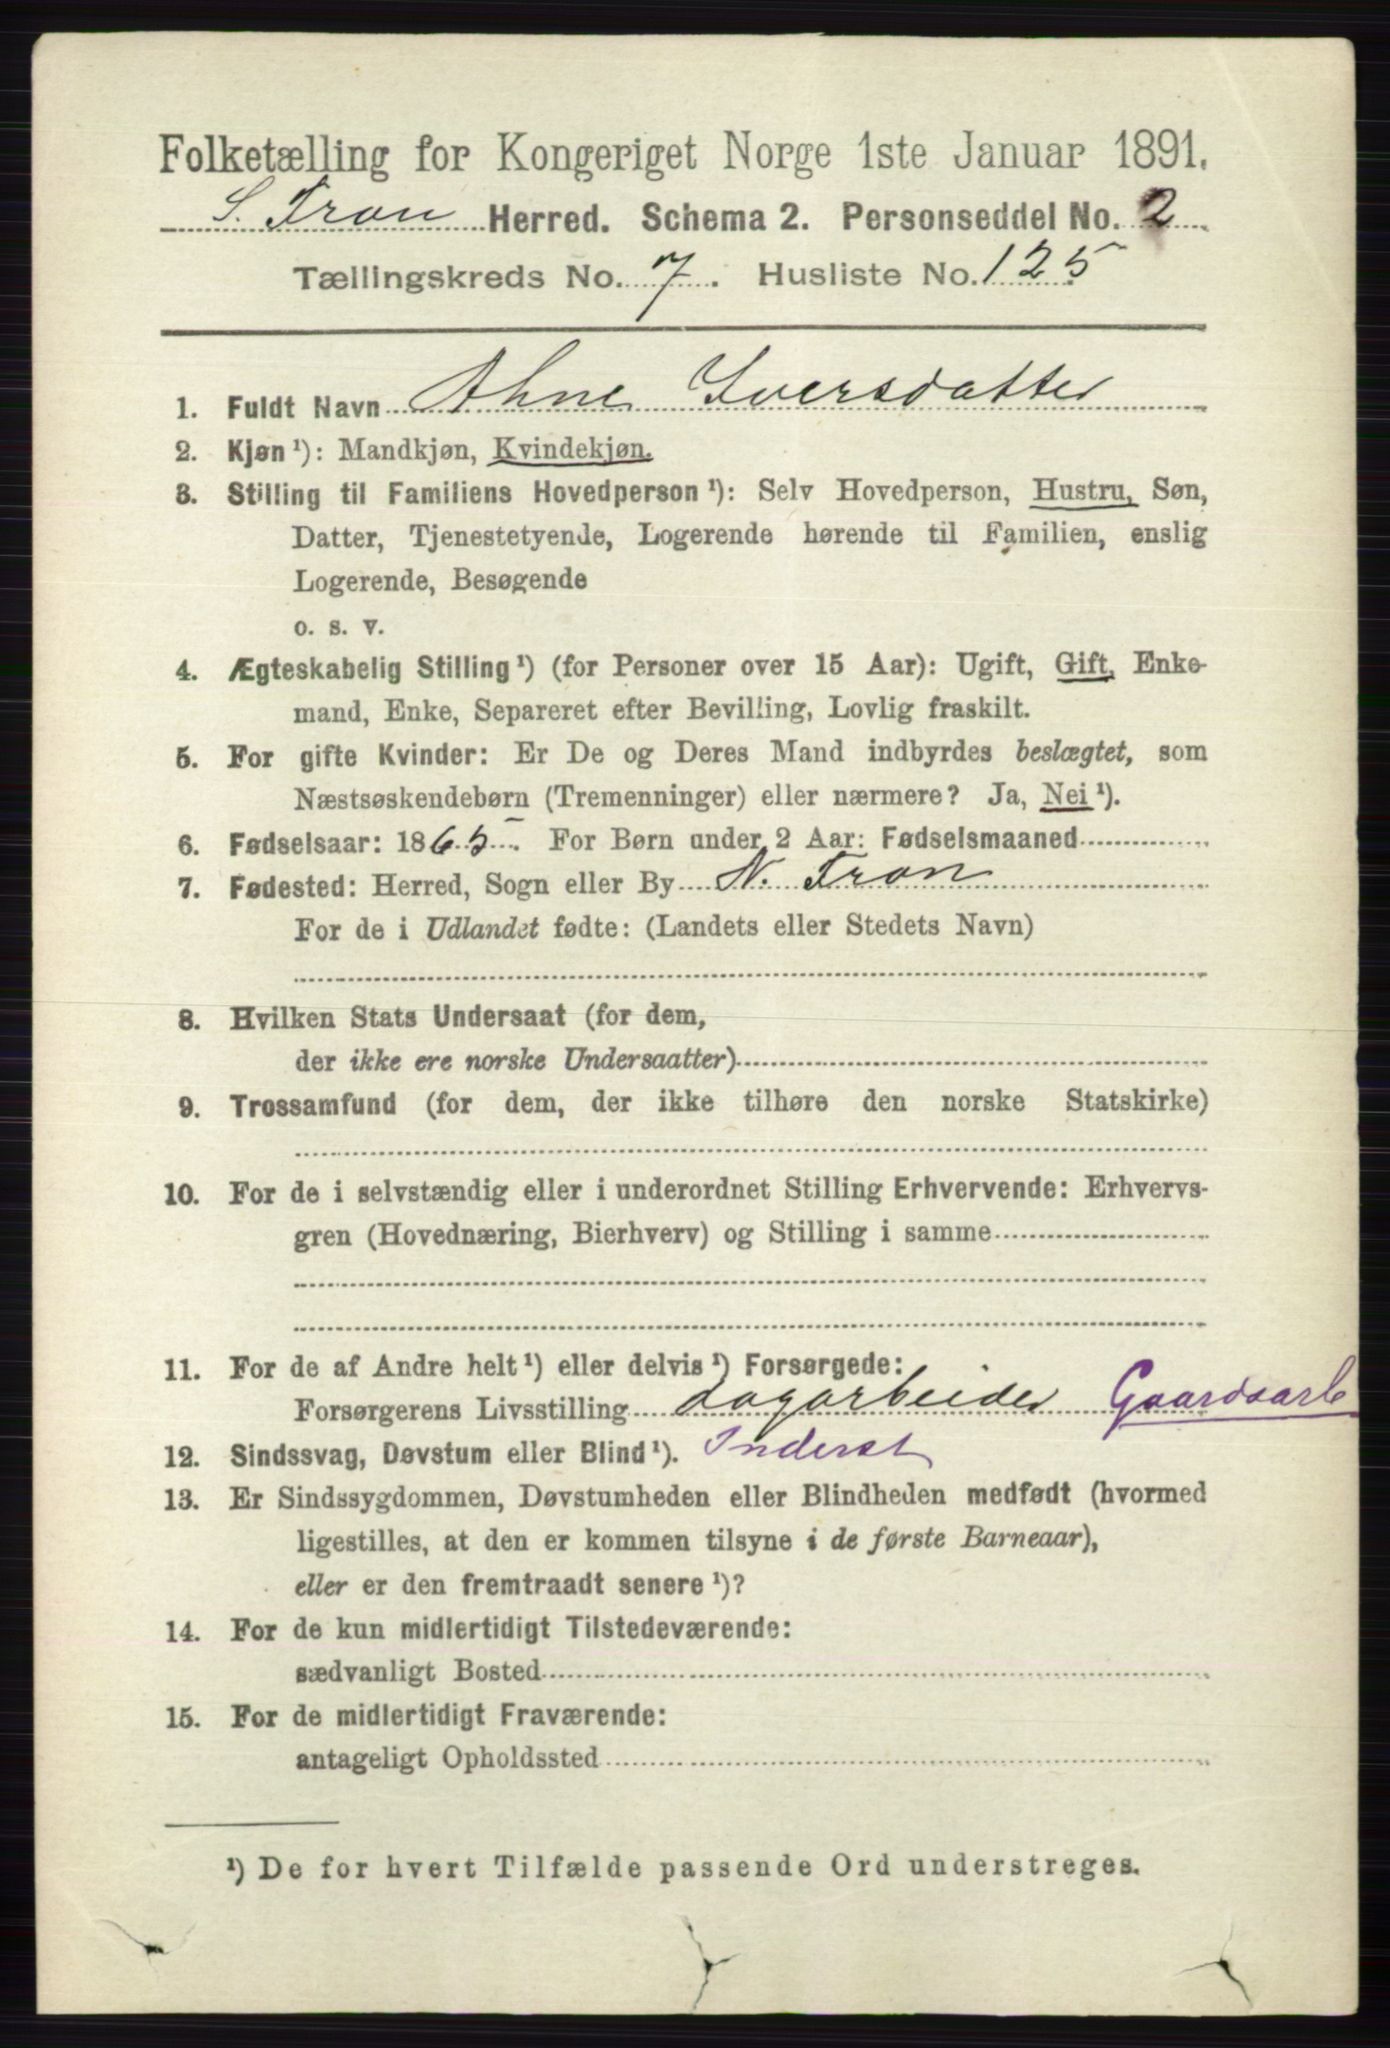 Folketælling for Kongeriget Norge 1ste Januar 1891.
S. Fron Herred. Schema 2. Personseddel No. 2
Tællingskreds No. 7. Husliste No. 125
1. Fuldt Navn Ahne Iversdatter
2. Kjøn ¹): Mandkjøn, Kvindekjøn.
3. Stilling til Familiens Hovedperson ¹): Selv Hovedperson, Hustru, Søn,
Datter, Tjenestetyende, Logerende hørende til Familien, enslig
Logerende, Besøgende
o. s. v.
4. Ægteskabelig Stilling ¹) (for Personer over 15 Aar): Ugift, Gift, Enke-
mand, Enke, Separeret efter Bevilling, Lovlig fraskilt.
5. For gifte Kvinder: Er De og Deres Mand indbyrdes beslægtet, som
Næstsøskendebørn (Tremenninger) eller nærmere? Ja, Nei ¹).
6. Fødselsaar: 1865. For Børn under 2 Aar: Fødselsmaaned
7. Fødested: Herred, Sogn eller By N. Fron
For de i Udlandet fødte: (Landets eller Stedets Navn)
8. Hvilken Stats Undersaat (for dem,
der ikke ere norske Undersaatter)
9. Trossamfund (for dem, der ikke tilhøre den norske Statskirke)
10. For de i selvstændig eller i underordnet Stilling Erhvervende: Erhvervs-
gren (Hovednæring, Bierhverv) og Stilling i samme
11. For de af Andre helt ¹) eller delvis ¹) Forsørgede:
Forsørgerens Livsstilling Dagarbeider Gaardsarb
12. Sindssvag, Døvstum eller Blind ¹). Inderst
13. Er Sindssygdommen, Døvstumheden eller Blindheden medfødt (hvormed
ligestilles, at den er kommen tilsyne i de første Barneaar),
eller er den fremtraadt senere ¹)?
14. For de kun midlertidigt Tilstedeværende:
sædvanligt Bosted
15. For de midlertidigt Fraværende:
antageligt Opholdssted
¹) De for hvert Tilfælde passende Ord understreges.